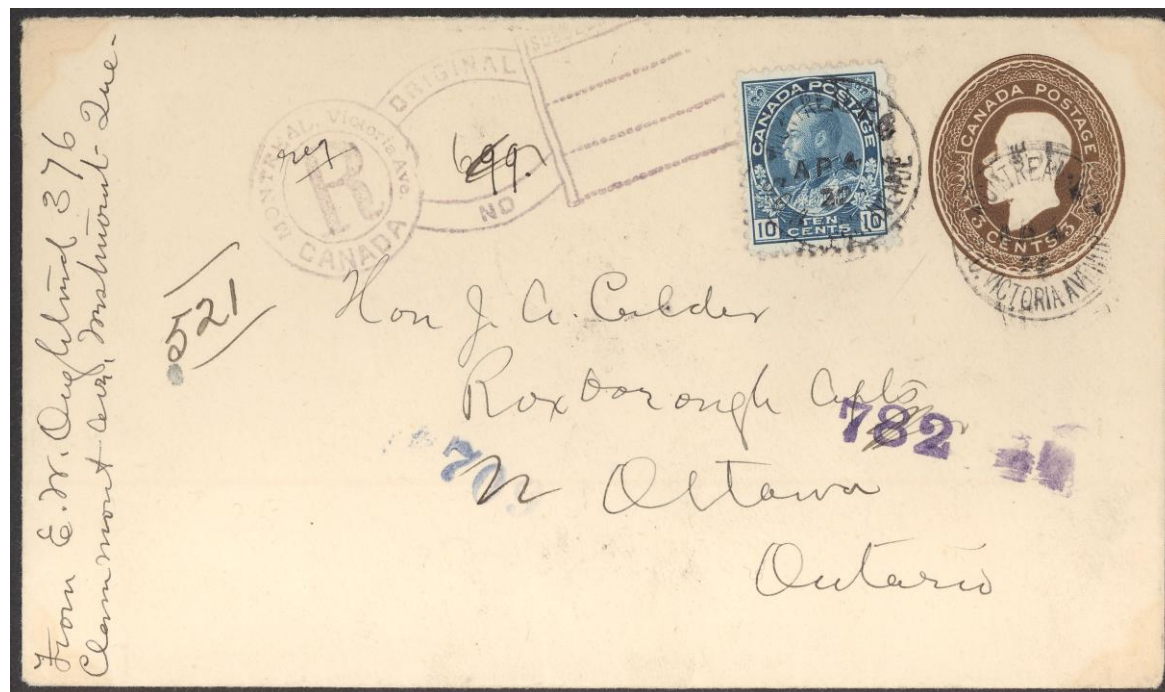 From E. W. 376
Clarmont Ave, Westmount - Que -
MONTREAL, Victoria Ave.
R
CANADA
reg
ORIGINAL
NO
521
CANADA POSTAGE
AP 4
22
TEN
10 CENTS 10
CANADA POSTAGE
3 CENTS 3
MONTREAL
VICTORIA AVENUE
Hon J. A. Calder
Roxborough Apts
782
70
Ottawa
Ontario